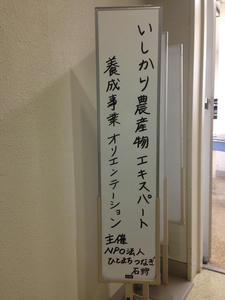 いしかり農産物エキスパート
養成事業オリエンテーション
主催
NPO法人
ひとまちつなぎ
石狩